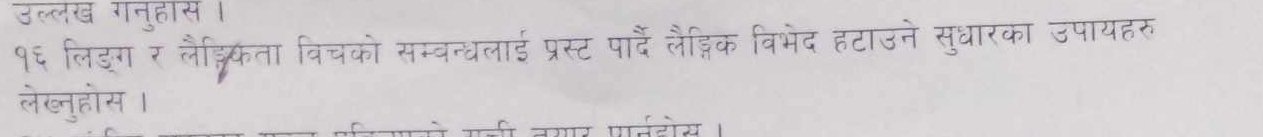 उल्लेख गर्नुहोस ।
१६ लिङ्ग र लैङ्गिकता विचको सम्वन्धलाई प्रस्ट पार्दै लैङ्गिक विभेद हटाउने सुधारका उपायहरु
लेख्नुहोस ।
तयार पार्नुहोस ।